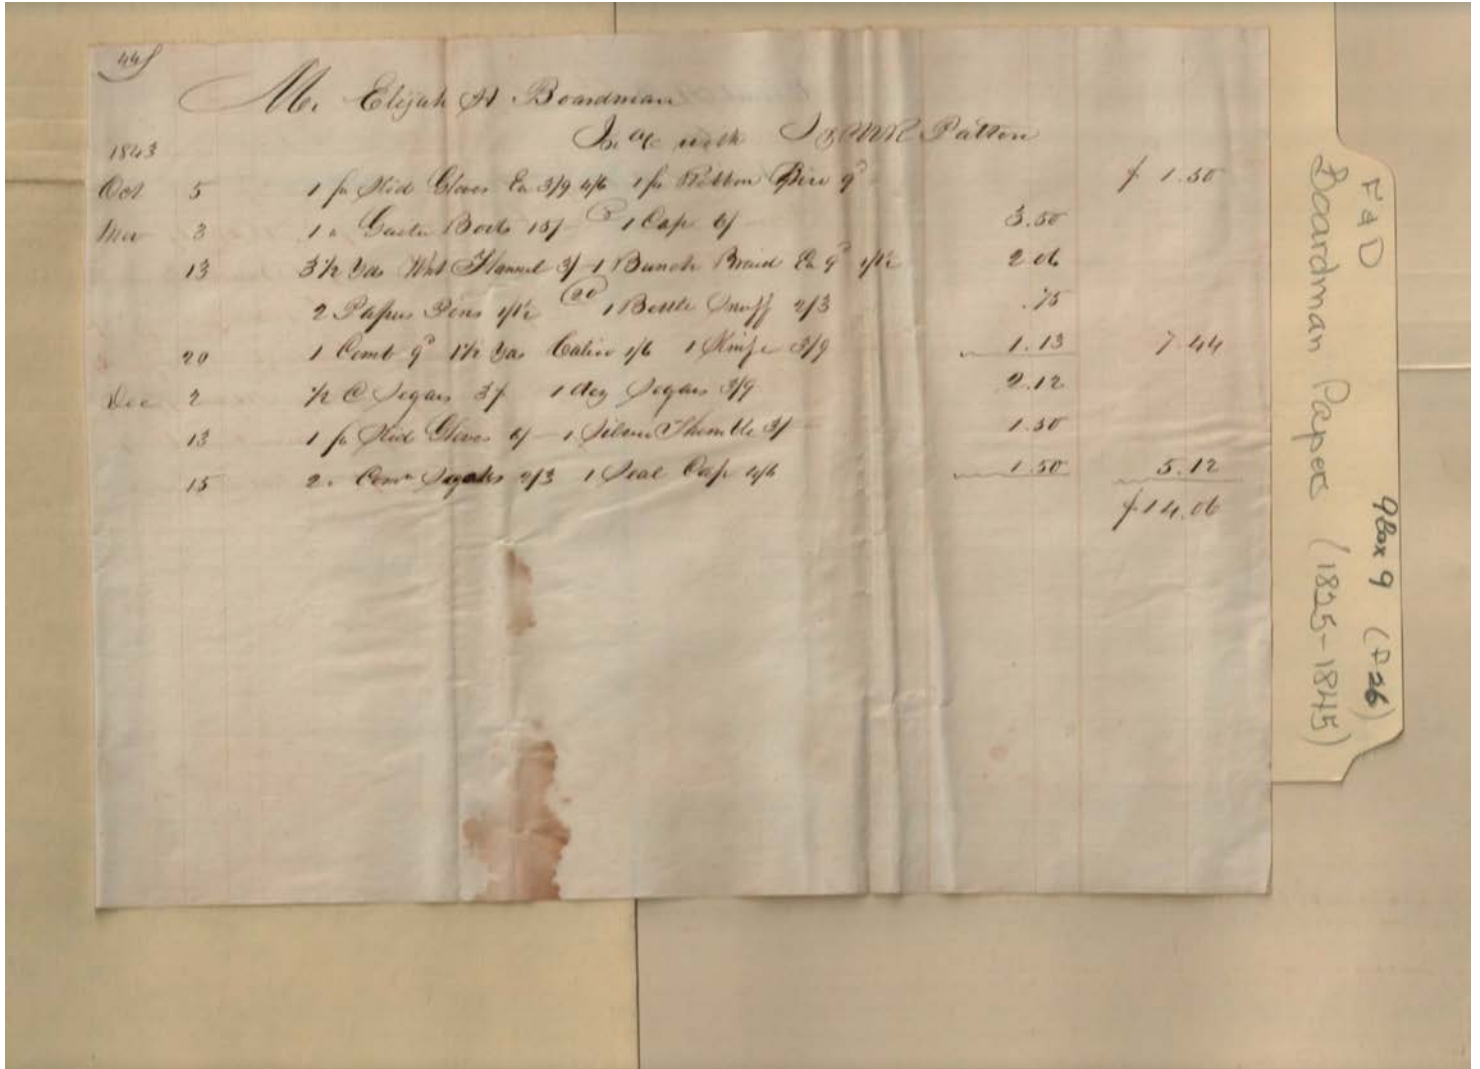 Mr. Elijah H Boardman
In a/c with J & W R Patton
1843
Oct 5 1 pr Kid Gloves 3/9 4/6 1 pr Ribbon 9d $ 1.50
Nov 3 1 " Gaiter Boots 15/- 1 Cap 6/- 3.50
13 3 1/2 Yds Flannel 3/- 1 Bunch Braid 9d 1/1½ 2.06
2 Papers Pins 1/1½ 1 Bottle Snuff 2/3 .75
20 1 Comb 9d 1½ Yds Calico 1/6 1 Knife 3/9 1.13 7.44
Dec 2 ½ C Segars 3/ 1 Segars 3/9 2.12
13 1 pr Kid Gloves 6/- 1 Silver Thimble 3/- 1.50
15 2 " Segars 2/3 1 Seal Cap 4/6 1.50 5.12
$14.06
F&D
Boardman Papers (1825-1845)
Box 9 (P26)